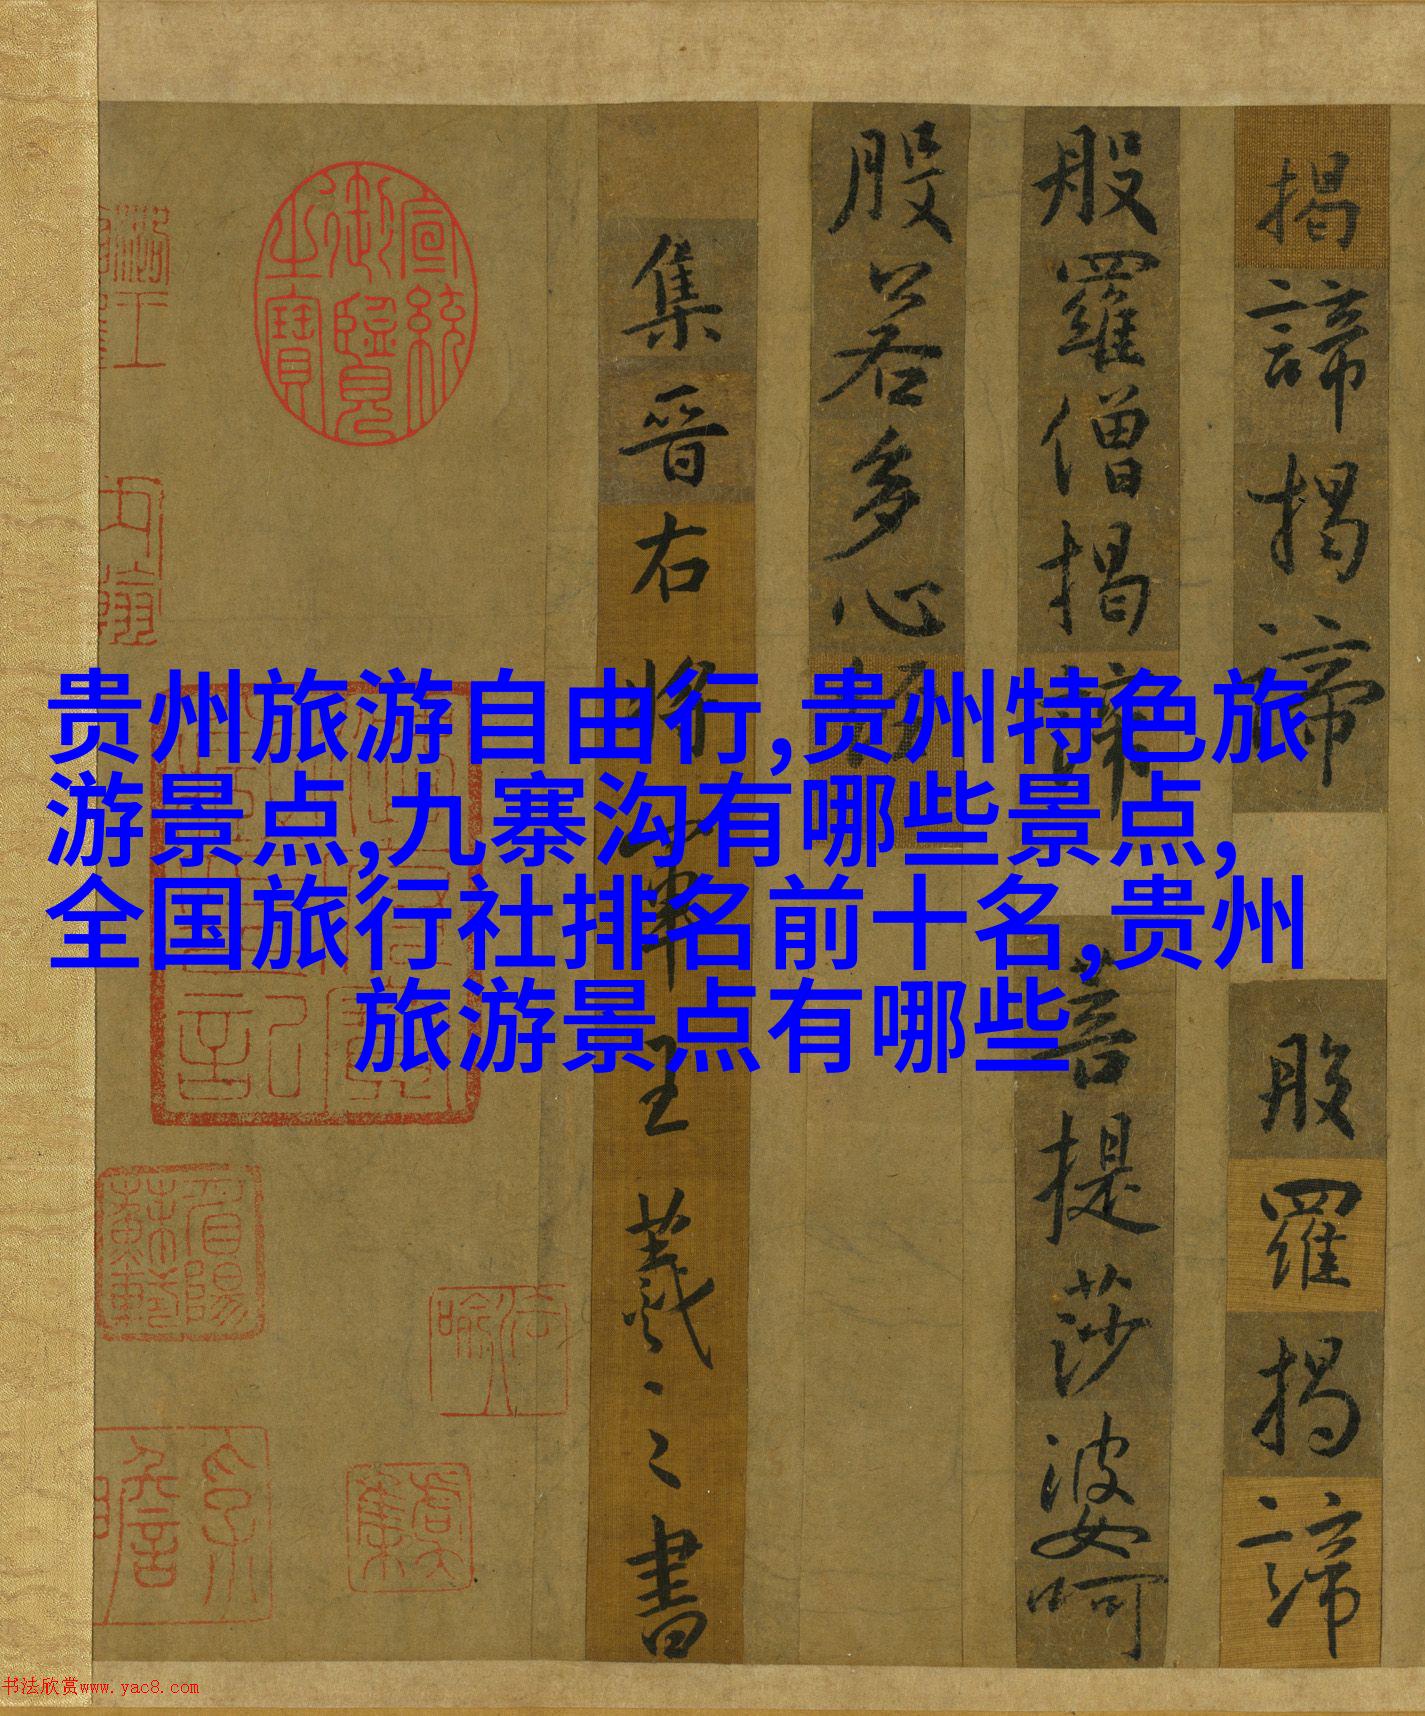 揭諦揭諦
般羅揭諦
般羅僧揭諦
菩提莎婆呵
般若多心經
集晉右將軍王羲之書
宣統御覽之寶
贵州旅游自由行,贵州特色旅
游景点,九寨沟有哪些景点,
全国旅行社排名前十名,贵州
旅游景点有哪些
书法欣赏www.yac8.com